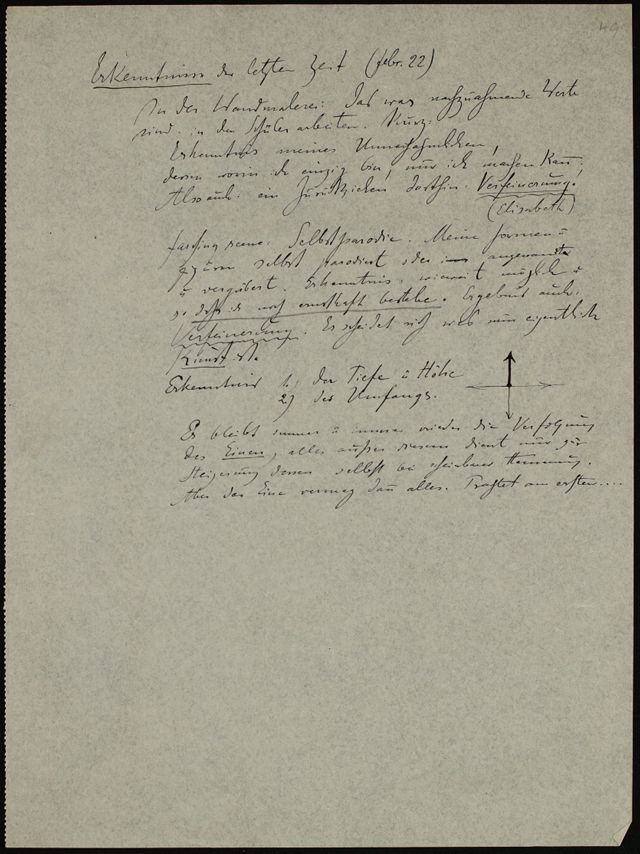 Erkenntnisse der letzten Zeit (Febr. 22)
In der Wandmalerei: Das was nachzuahmende Werte
sind. in den Schülerarbeiten. Kurz:
Erkenntnis meines Unnachahmlichen,
dessen worin ich einzig bin, nur ich machen kann;
Also auch: ein Zurückziehen dorthin. Verfeinerung!
(Elisabeth)
Selbstparodie. Meine Formen u
selbst parodiert oder angewandte
u vergröbert. Erkenntnis, wieweit möglich u
so daß ich noch ernsthaft bestehe. Ergebnis auch:
Verfeinerung. Es scheidet sich was nun eigentlich
Kunst ist.
Erkenntnis 1, der Tiefe u Höhe
2) des Umfangs.
Es bleibt immer u immer wieder die Verfolgung
des Einen, alles außer diesem dient nur zur
Steigerung dessen selbst bei scheinbarer Hemmung.
Aber das Eine vermag dann alles. Trachtet am ersten....